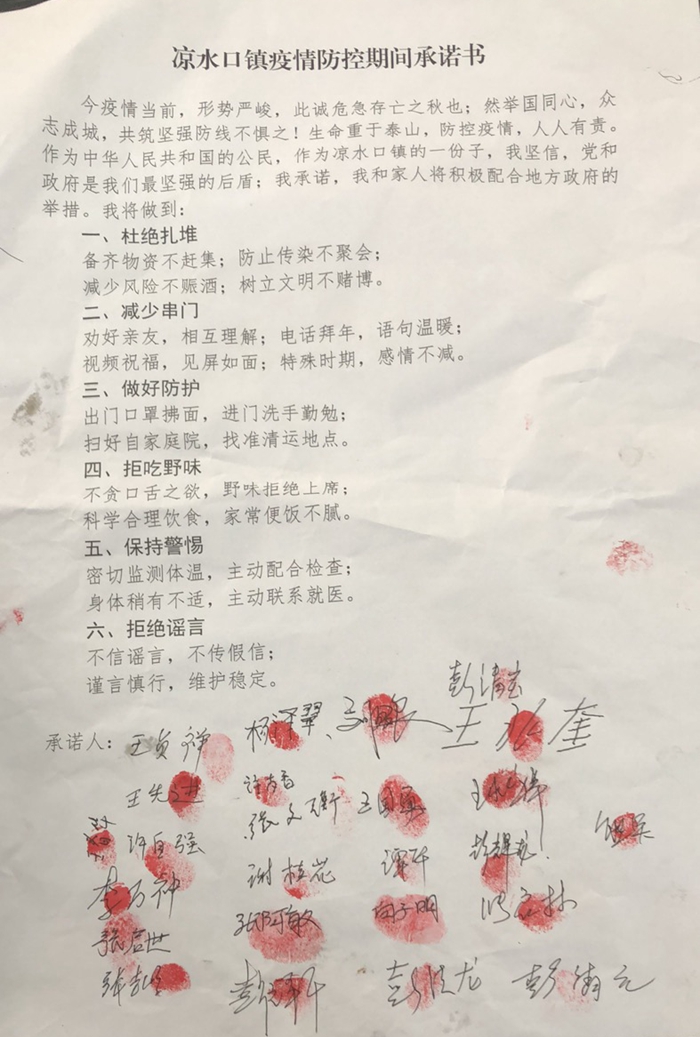 凉水口镇疫情防控期间承诺书
今疫情当前，形势严峻，此诚危急存亡之秋也；然举国同心，众
志成城，共筑坚强防线不惧之！生命重于泰山，防控疫情，人人有责。
作为中华人民共和国的公民，作为凉水口镇的一份子，我坚信，党和
政府是我们最坚强的后盾；我承诺，我和家人将积极配合地方政府的
举措。我将做到：
一、杜绝扎堆
备齐物资不赶集；防止传染不聚会；
减少风险不赈酒；树立文明不赌博。
二、减少串门
劝好亲友，相互理解；电话拜年，语句温暖；
视频祝福，见屏如面；特殊时期，感情不减。
三、做好防护
出门口罩拂面，进门洗手勤勉；
扫好自家庭院，找准清运地点。
四、拒吃野味
不贪口舌之欲，野味拒绝上席；
科学合理饮食，家常便饭不腻。
五、保持警惕
密切监测体温，主动配合检查；
身体稍有不适，主动联系就医。
六、拒绝谣言
不信谣言，不传假信；
谨言慎行，维护稳定。
承诺人：王贞祥
王先进 張文衡
许自强 谢桂花
李万钟 向子明
張启世